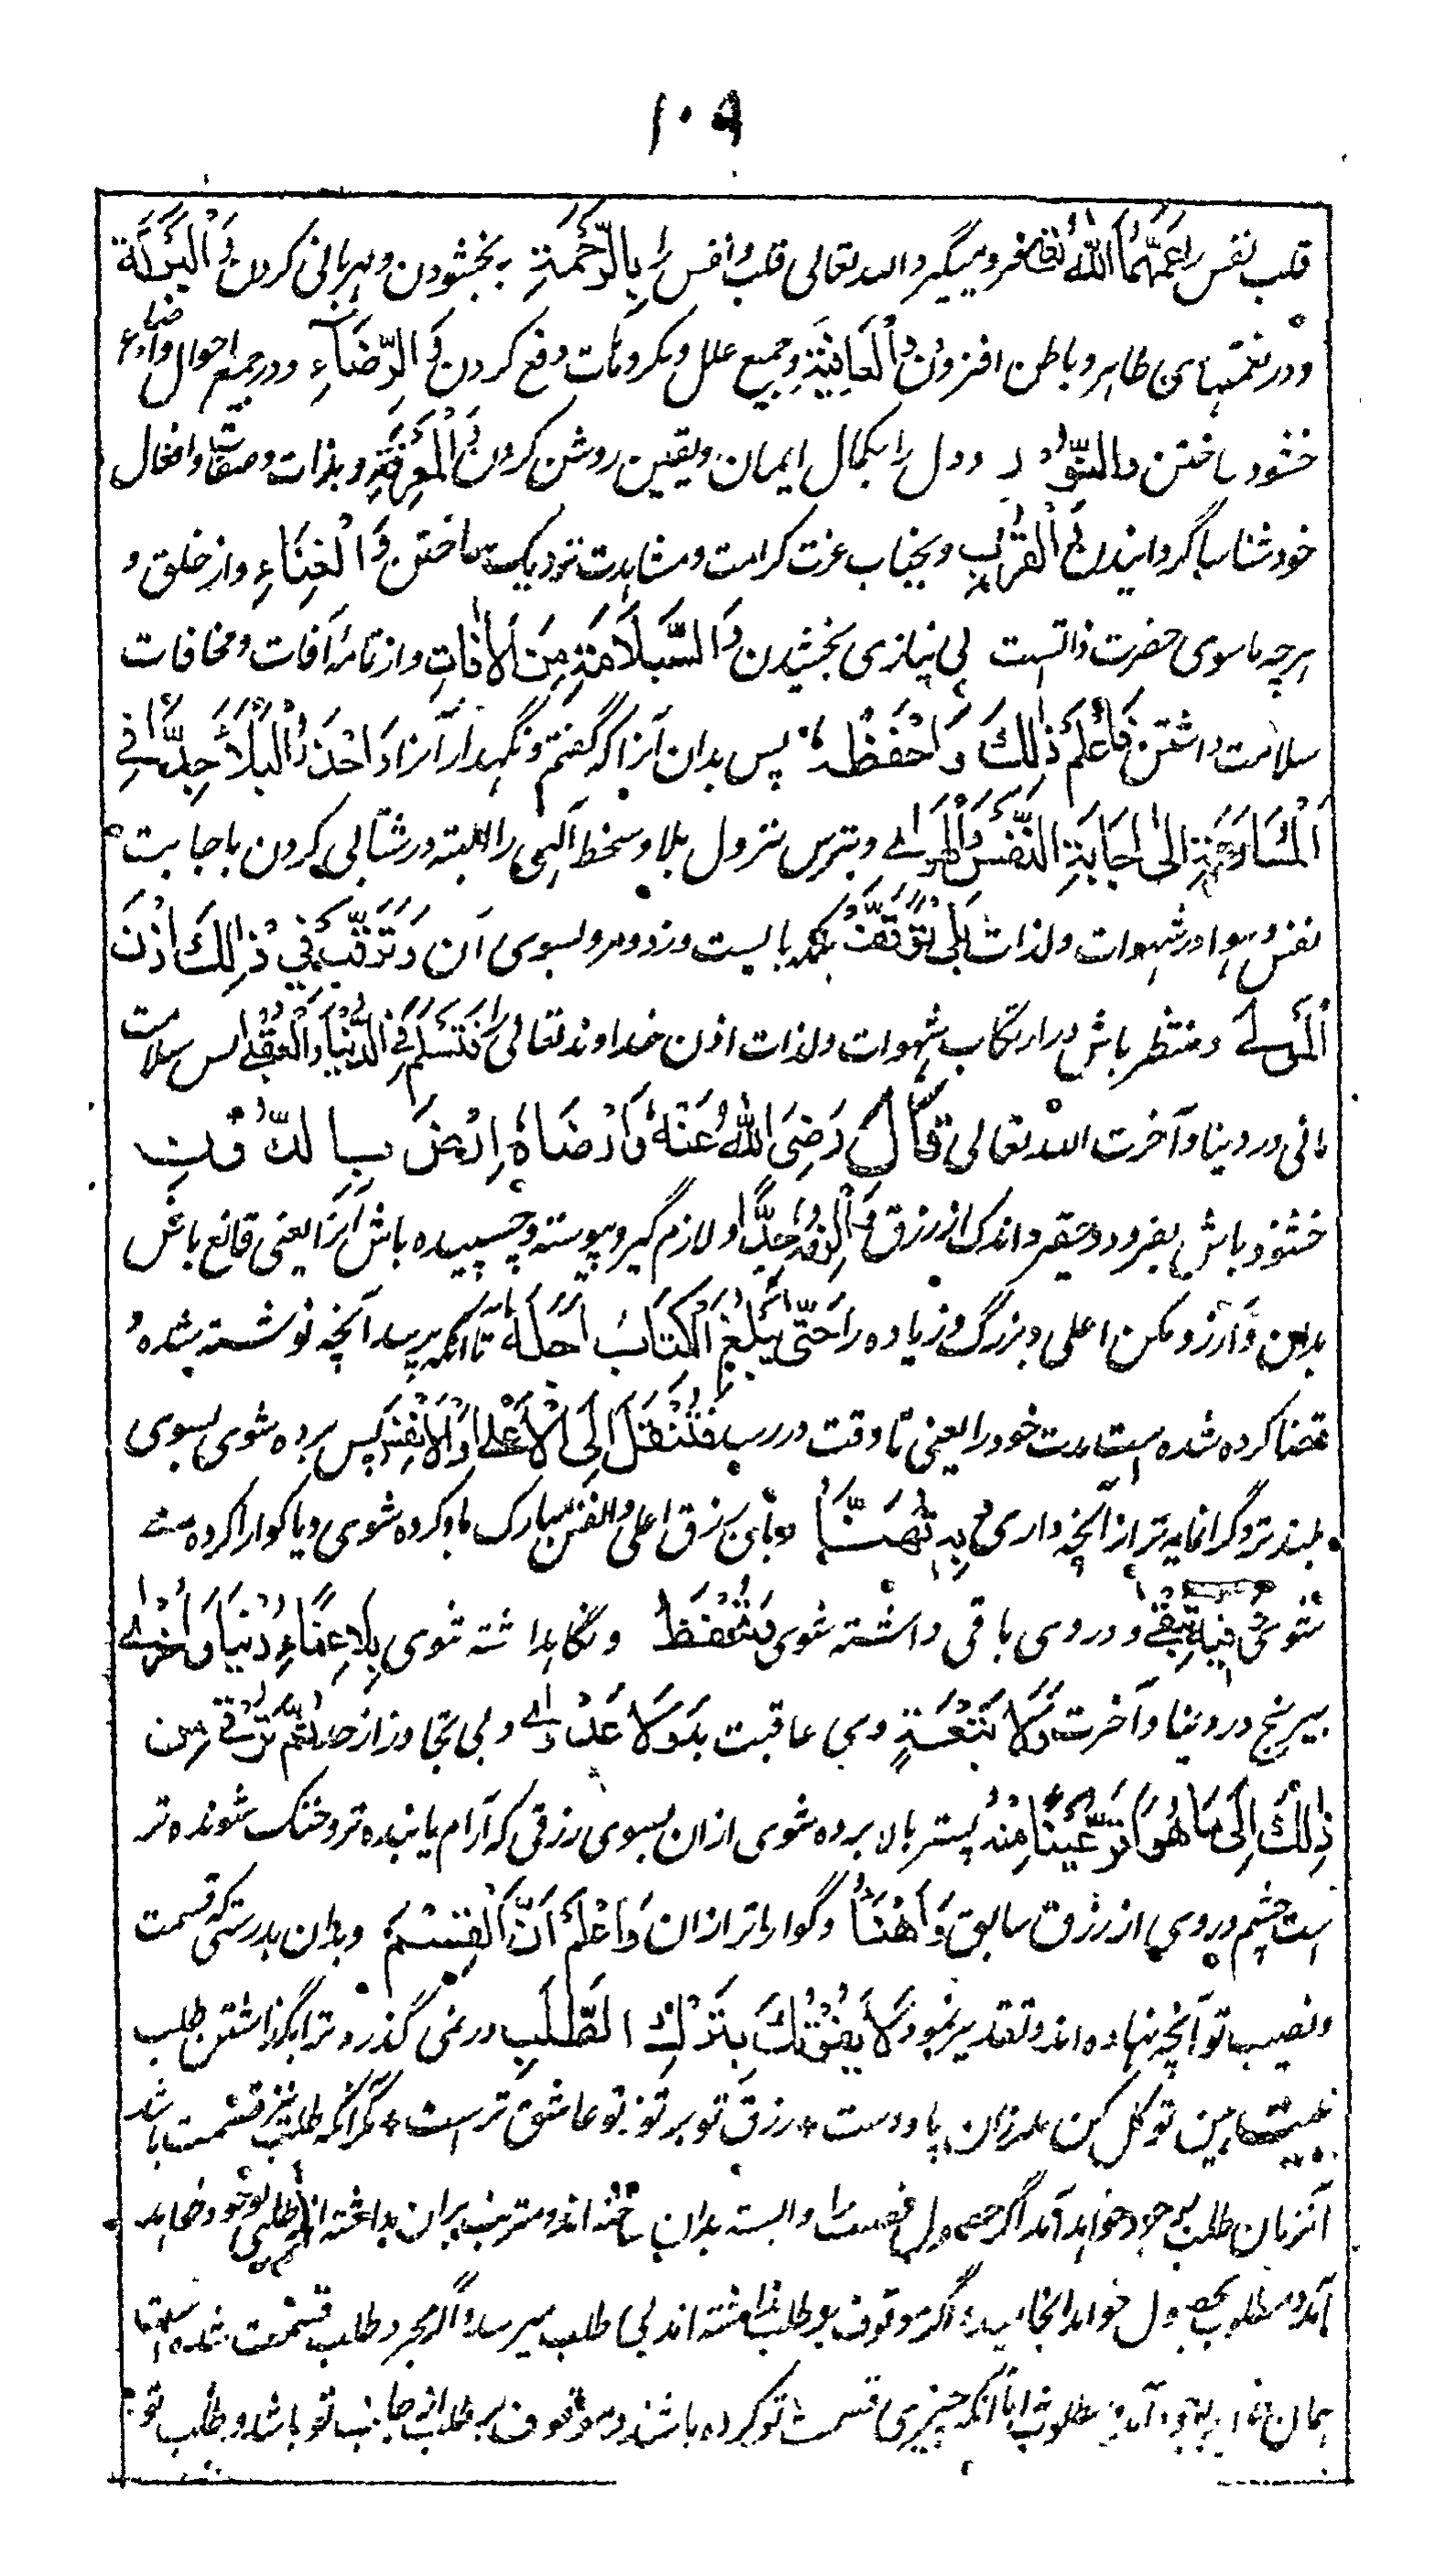 ۱۰۹
قلب نفس را عَمَّهُمَا اللّٰهُ تعالی فرو میگیرد الله تعالی قلب و نفس را بِالرَّحْمَةِ به بخشودن و مهربانی کردن وَالْبَرَكَةِ
و در نعمتهای ظاهر و باطن افزودن وَالْعَافِيَةِ و جمیع علل و مکروهات دفع کردن وَالرِّضَاءِ و در جمیع احوال و اوضاع
خشنود ساختن وَالنُّوْرِ و دل را بکمال ایمان و یقین روشن کردن وَالْمَعْرِفَةِ و بذات و صفات و افعال
خود شناسا گردانیدن وَالْقُرْبِ و بجناب عزت کرامت و مشاهدت نزدیک ساختن وَالْغِنَاءِ و از خلق و
هرچه ماسوی حضرت ذاتست بی نیازی بخشیدن وَالسَّلَامَةِ مِنَ الْاٰفَاتِ و از تمامۀ آفات و مخافات
سلامت داشتن فَاعْلَمْ ذٰلِكَ وَاحْفَظْهُ پس بدان آنرا که گفتم و نگهدار آنرا وَاحْذَرِ الْبَلَاءَ جِدًّا فِي
الْمُسَارَعَةِ اِلٰى اِجَابَةِ النَّفْسِ وَالْهَوٰى و بترس نزول بلا و سخط الهی را البته در شتابی کردن باجابت
نفس و هوا در شهوات و لذات بَلْ تَوَقَّفْ بلکه بایست و زود مرو بسوی آن وَتَرَقَّبْ فِي ذٰلِكَ اِذْنَ
الْمَوْلٰى و منتظر باش در ارتکاب شهوات و لذات اذن خداوند تعالی را فَتَسْلَمَ فِي الدُّنْيَا وَالْعُقْبٰى پس سلامت
مانی در دنیا و آخرت الله تعالی قَالَ رَضِيَ اللّٰهُ عَنْهُ وَاَرْضَاهُ اِرْضَ بِالدُّوْنِ
خشنود باش بفرود و حقیر و اندک از رزق وَالْزِمْهُ جِدًّا و لازم گیر و پیوسته و چسپیده باش آنرا یعنی قانع باش
بدان و آرزو مکن اعلی و بزرگ و زیاده را حَتّٰى يَبْلُغَ الْكِتَابُ اَجَلَهُ تا آنکه برسد آنچه نوشته شده و
قضا کرده شده است مدت خود را یعنی تا وقت در رسد فَتُنْقَلَ اِلَى الْاَعْلٰى وَالْاَنْفَسِ پس برده شوی بسوی
بلندتر و گرانمایه تر از آنچه داری وَبِهِ تُهَنَّأُ و باین رزق اعلی و انفس مبارک باد کرده شوی و یا گوارا کرده
شوی وَفِيْهِ تُبْقٰى و در وی باقی داشته شوی وَتُحْفَظُ و نگاهداشته شوی بِلَا عَنَاءٍ دُنْيَا وَاُخْرٰى
بیرنج در دنیا و آخرت وَلَا تَبِعَةٍ و بی عاقبت بد وَلَا عَدْوٰى و بی تجاوز از حد ثُمَّ تَرْقٰى مِنْ
ذٰلِكَ اِلٰى مَا هُوَ اَقَرُّ عَيْنًا مِنْهُ پستر بالا برده شوی ازان بسوی رزقی که آرام یابنده تر و خنک شونده تر
است چشم بروی از رزق سابق وَاَهْنَأُ و گواراتر ازان وَاعْلَمْ اَنَّ الْقِسْمَ و بدان بدرستیکه قسمت
و نصیب تو آنچه نهاده اند و تقدیر نموده لَا يَفُوْتُكَ بِتَرْكِ الطَّلَبِ در نمی گذرد ترا بگذاشتن طلب
بیت هین توکل کن ملرزان پا و دست * رزق تو بر تو ز تو عاشق تر است * مگر آنکه طلب نیز قسمت باشد
آنزمان طلب بوجود خواهد آمد اگر حصول قسمت را وابسته بدان ساخته اند و مترتب بران داشته اند طلبی بوجود خواهد
آمد و مطلوب بحصول خواهد انجامید و اگر موقوف بر طلب نداشته اند بی طلب میرسد و اگر مجرد طلب قسمت شده است
همان خواهد بود آمد نه مطلوب اما آنکه چیزی قسمت تو کرده باشند و موقوف بر طلب از جانب تو باشد و طلب تو